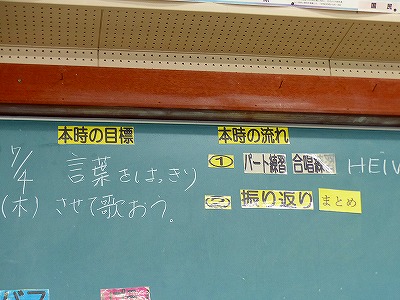 国民
本時の目標
本時の流れ
7/4 言葉をはっきり
(木) させて歌おう。
① パート練習 合唱 HEIW
② 振り返り まとめ